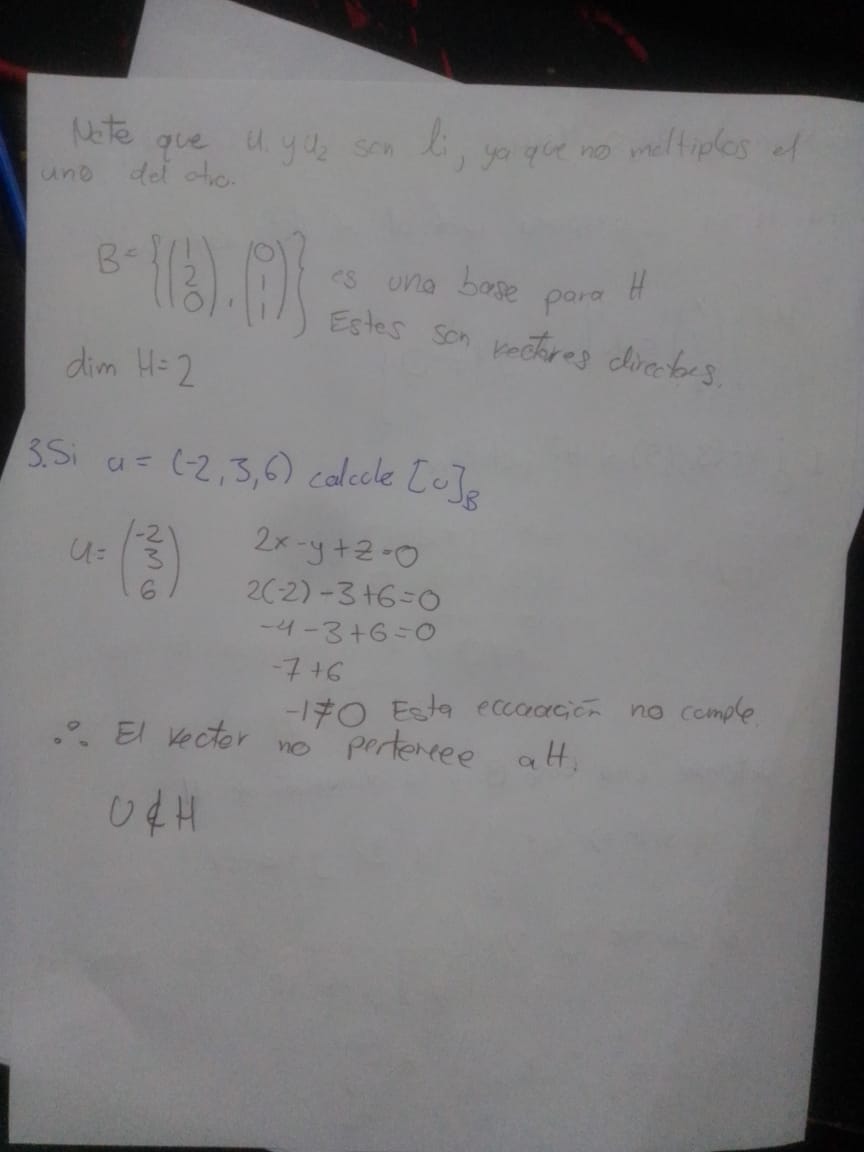 Note que u, y u2 son li, ya que no multiplos el
uno del otro.
B = {(1 2 0), (0 1 1)} es una base para H
Estos son vectores directores.
dim H = 2
3. Si u = (-2, 3, 6) calcule [u]B
u = (-2 3 6) 2x - y + z = 0
2(-2) - 3 + 6 = 0
-4 - 3 + 6 = 0
-7 + 6
-1 ≠ 0 Esta eccuación no cumple.
∴ El vector no pertenece a H.
U ∉ H